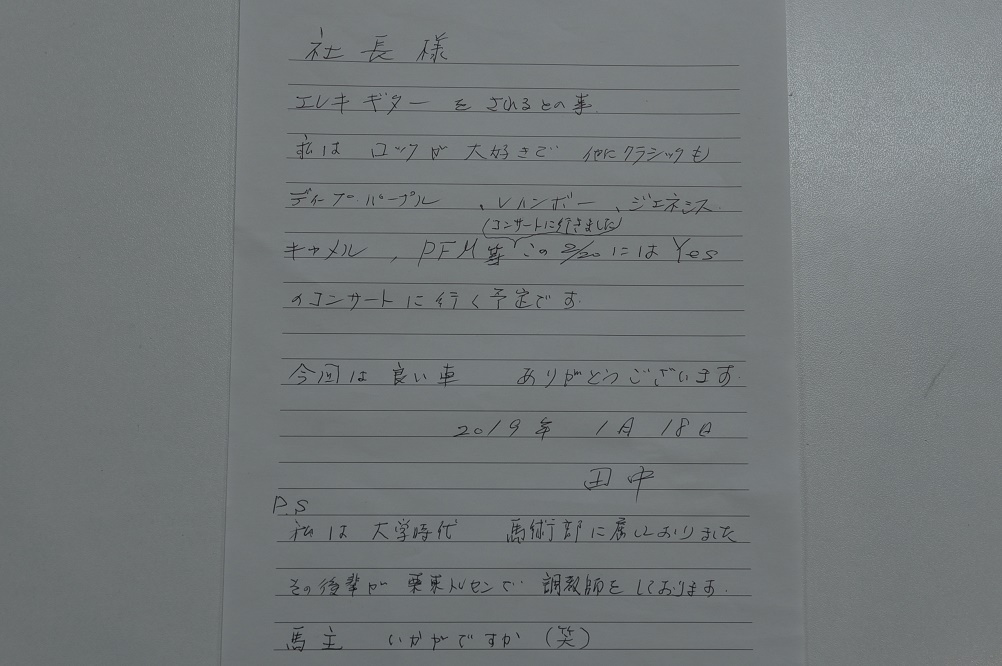 社長様
エレキギターをされるとの事
私は ロックが 大好きで 他にクラシックも
ディープ・パープル 、レインボー 、ジェネシス
(コンサートに行きました)
キャメル , PFM等 この 2/20 には Yes
のコンサートに行く予定です.
今回は 良い車 ありがとうございます.
2019年 1月 18日
田中
P.S
私は 大学時代 馬術部に属しおりました
その後輩が 栗東トレセンで 調教師をしております.
馬主 いかがですか (笑)